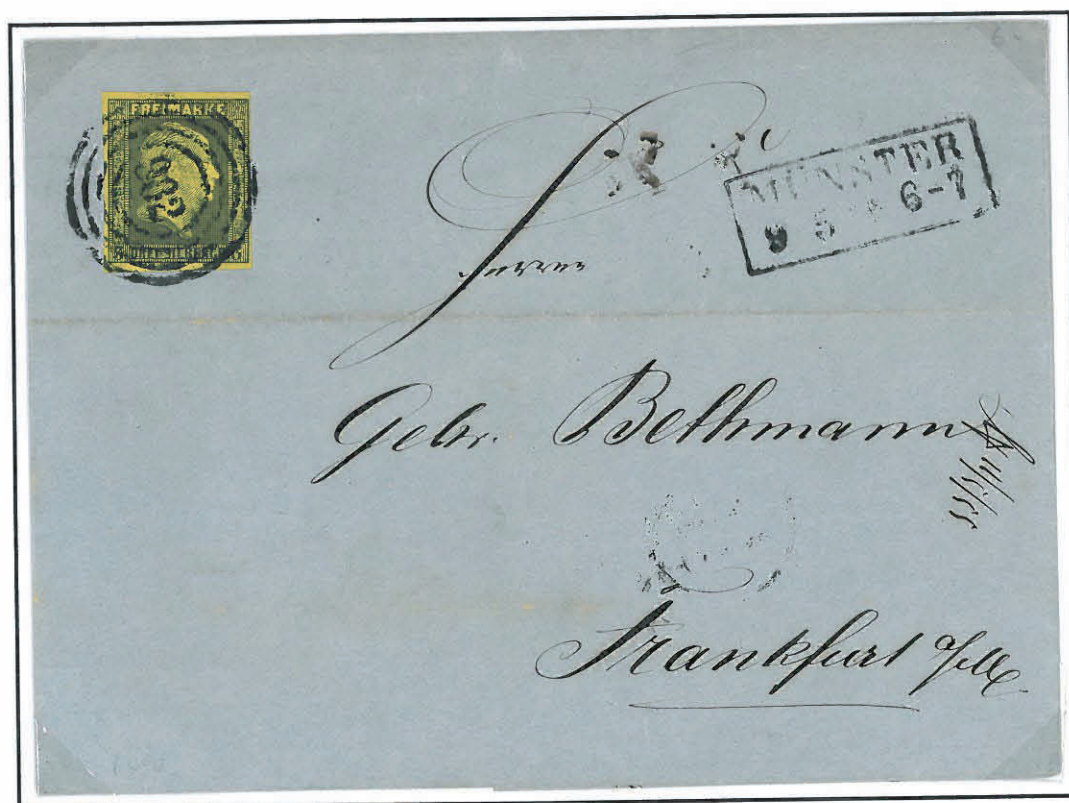 FREIMARKE
MÜNSTER
9 5 6-7
Herren
Gebr. Bethmann
Frankfurt a/M